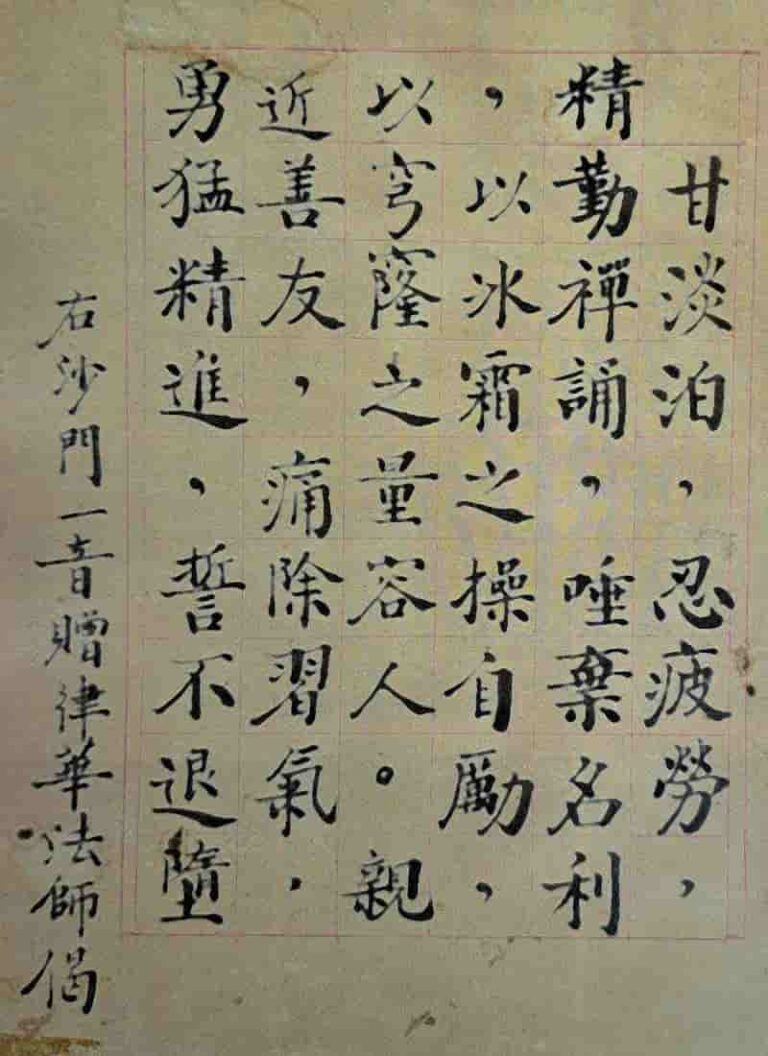 甘淡泊，忍疲勞，
精勤禪誦，唾棄名利
，以冰霜之操自勵，
以穹窿之量容人。親
近善友，痛除習氣，
勇猛精進，誓不退墮
右沙門一音贈律華法師偈